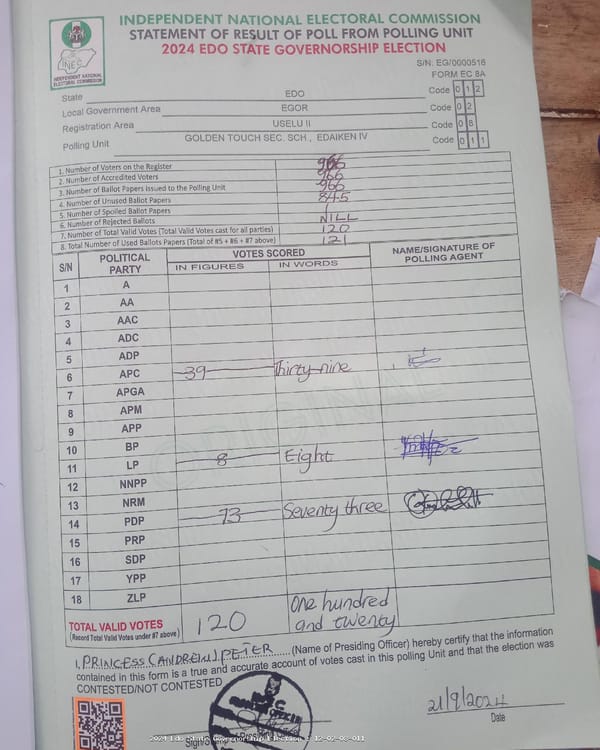 INDEPENDENT NATIONAL ELECTORAL COMMISSION
STATEMENT OF RESULT OF POLL FROM POLLING UNIT
2024 EDO STATE GOVERNORSHIP ELECTION
INEC
INDEPENDENT NATIONAL
ELECTORAL COMMISSION
S/N: EG/0000516
FORM EC 8A
State EDO Code 0 1 2
Local Government Area EGOR Code 0 2
Registration Area USELU II Code 0 8
Polling Unit GOLDEN TOUCH SEC. SCH., EDAIKEN IV Code 0 1 1
1. Number of Voters on the Register 966
2. Number of Accredited Voters
3. Number of Ballot Papers Issued to the Polling Unit 966
4. Number of Unused Ballot Papers 845
5. Number of Spoiled Ballot Papers 1
6. Number of Rejected Ballots NILL
7. Number of Total Valid Votes (Total Valid Votes cast for all parties) 120
8. Total Number of Used Ballots Papers (Total of #5 + #6 + #7 above) 121
S/N POLITICAL PARTY VOTES SCORED NAME/SIGNATURE OF POLLING AGENT
IN FIGURES IN WORDS
1 A
2 AA
3 AAC
4 ADC
5 ADP
6 APC 39 Thirty-nine
7 APGA
8 APM
9 APP
10 BP
11 LP 8 Eight
12 NNPP
13 NRM
14 PDP 73 Seventy three
15 PRP
16 SDP
17 YPP
18 ZLP
TOTAL VALID VOTES 120 One hundred and twenty
(Record Total Valid Votes under #7 above)
I, PRINCESS (ANDREW) PETER (Name of Presiding Officer) hereby certify that the information
contained in this form is a true and accurate account of votes cast in this polling Unit and that the election was
CONTESTED/NOT CONTESTED
21/9/2024
Date
2024 Edo State Governorship Election : 12-02-08-011